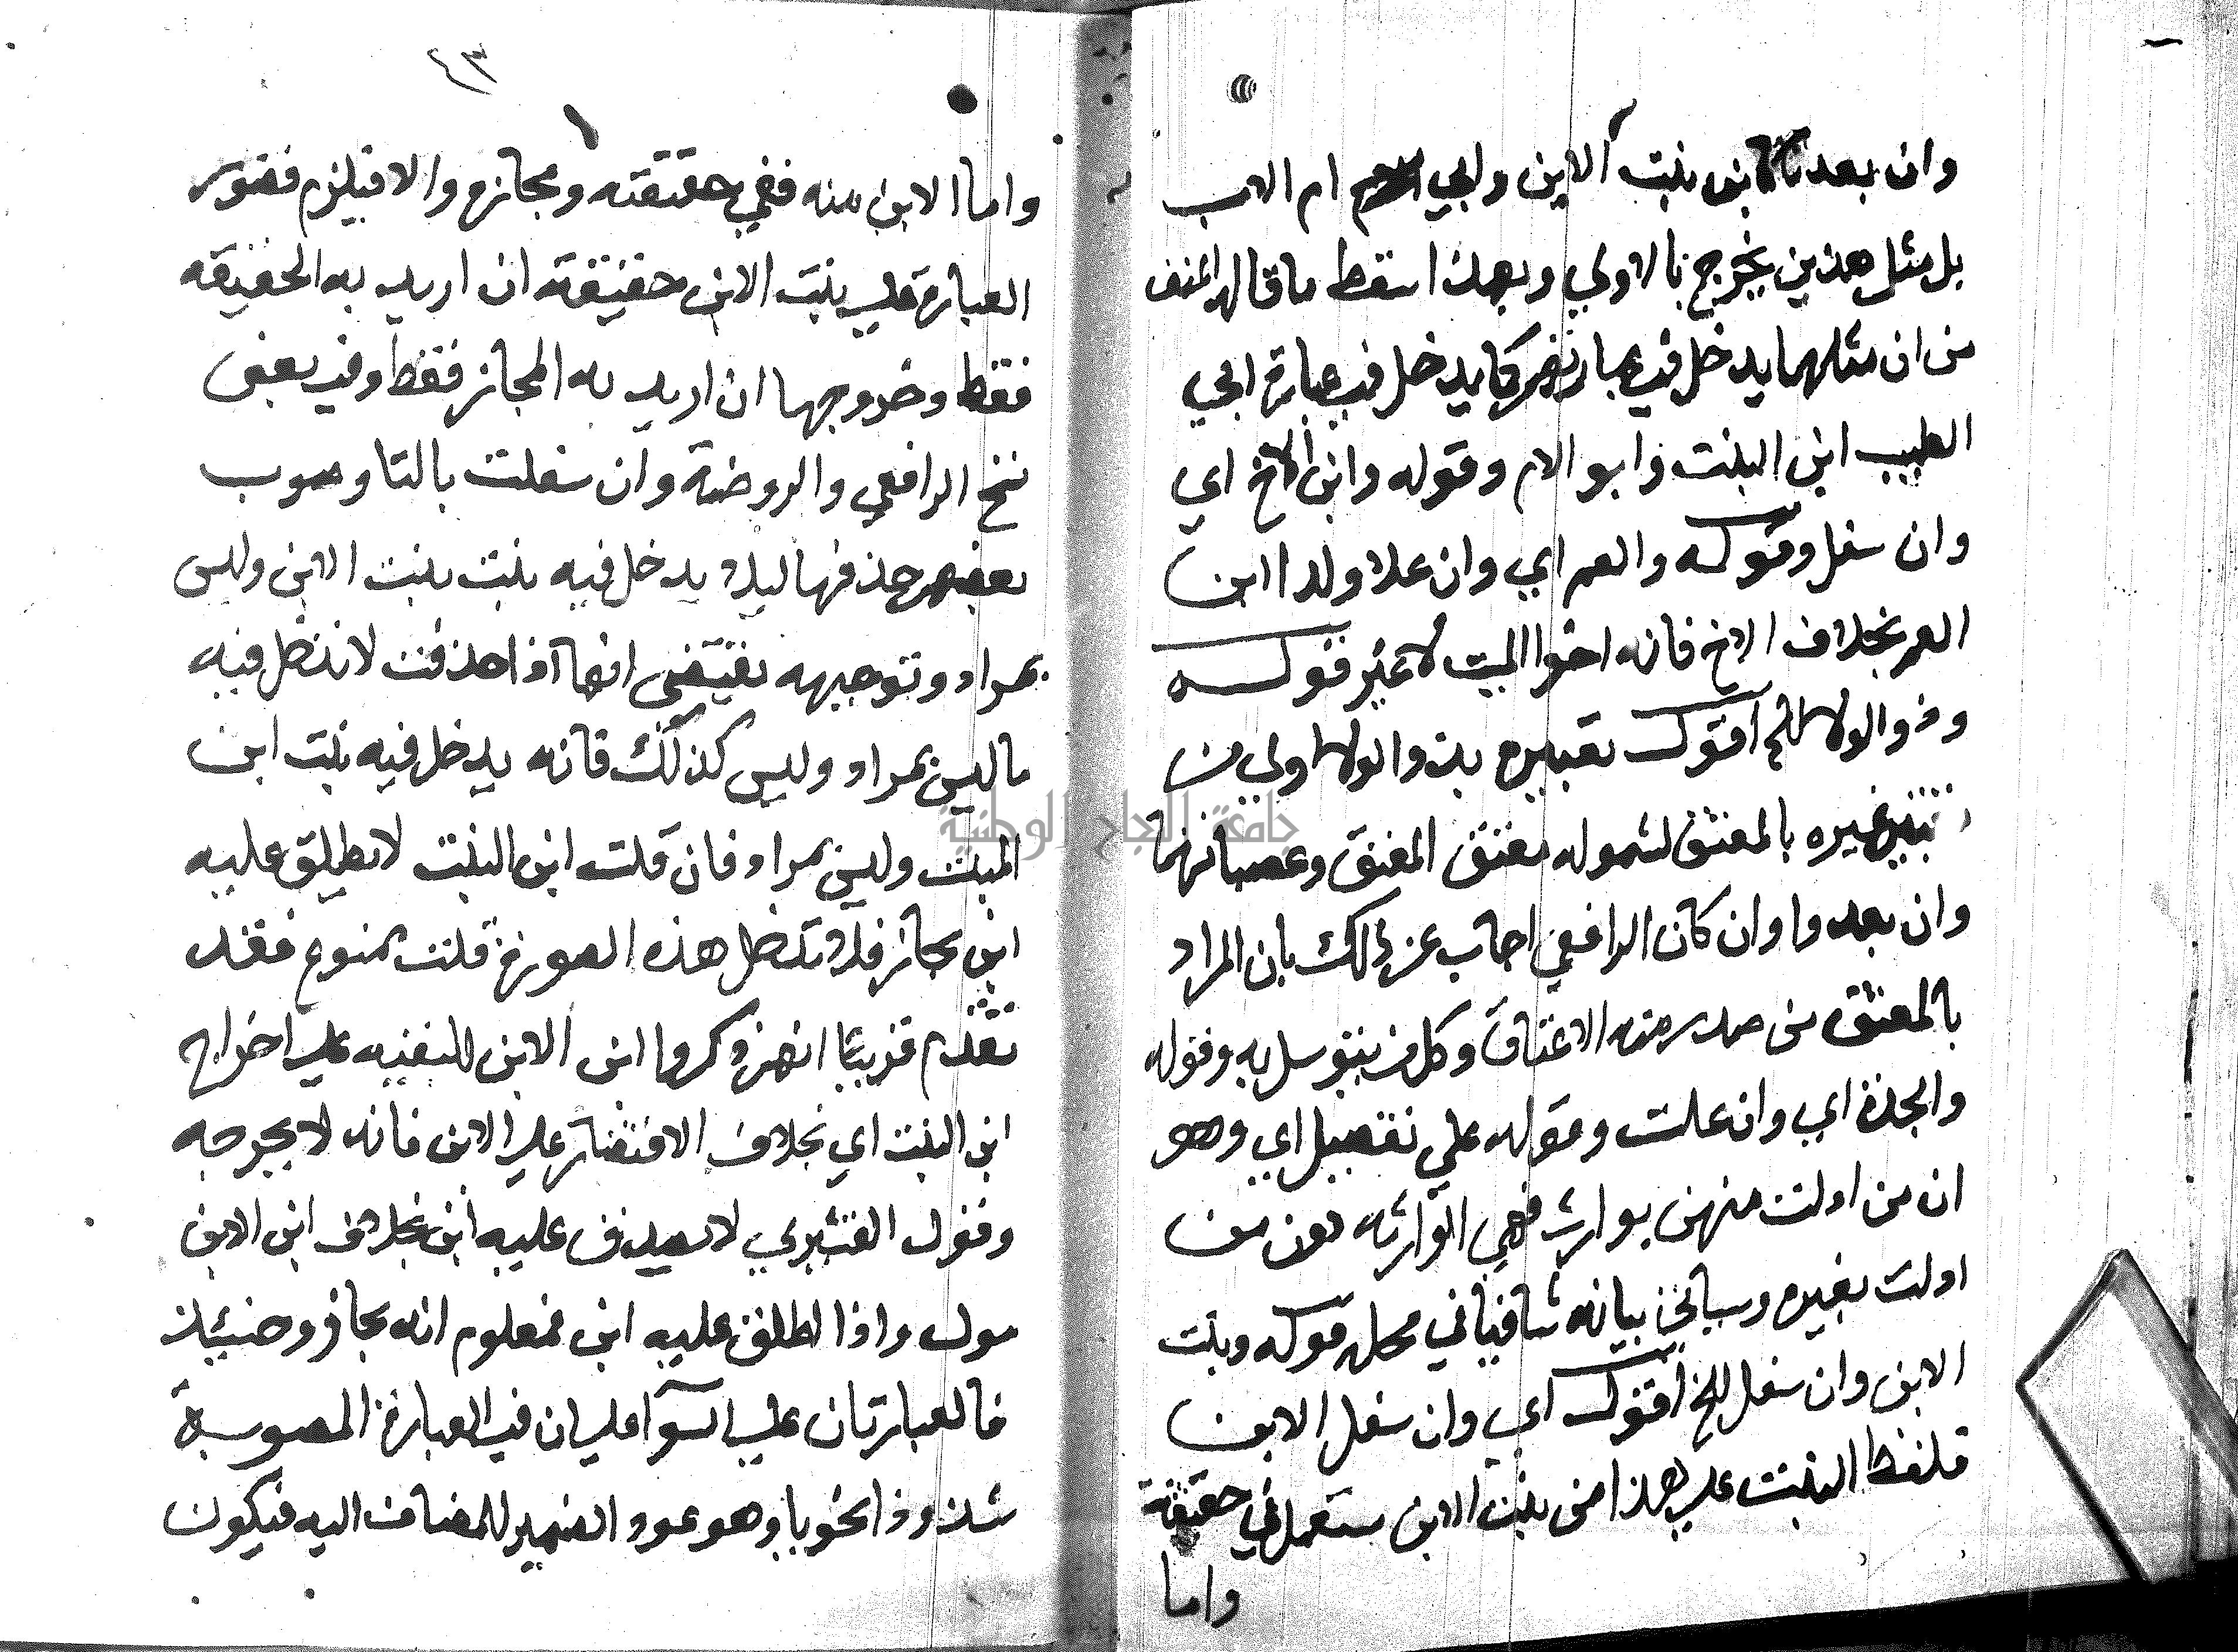 وان بعد كابن بنت الابن وابي ام الاب
بل مثل هذين يخرج بالاولي وبهذا سقط ما قاله المنف
من ان مثلهما يدخل في عبارتهم كما يدخل في عبارة ابي
الطيب ابن البنت وابو الام وقوله وابن الاخ اي
وان سفل وقوله والعم اي وان علا ولد ابن
العم بخلاف الاخ فانه اخوا الميت لا غير قوله
وذو الولا الخ اقول تعبيره بذو الولا اولي من
تعبير غيره بالمعتق لشموله معتق المعتق وعصباتهما
وان بعدوا وان كان الرافعي اجاب عن ذلك بان المراد
بالمعتق من صدر منه الاعتاق وكل من يتوسل به وقوله
والجدة اي وان علت وقوله علي تفصيل اي وهو
ان من ادلت منهن بوارث فهي الوارثه دون من
ادلت بغيره وسياتي بيانه شافيا في محله قوله وبنت
الابن وان سفل الخ اقول اي وان سفل الابن
فلفظ البنت علي هذا من بنت الابن مستعمل في حقيقة
واما
٤٣
واما الابن منه ففي حقيقته ومجازه والا فيلزم قصور
العبارة علي بنت الابن حقيقة ان اريد به الحقيقه
فقط وخروجها ان اريد به المجاز فقط وفي بعض
نسخ الرافعي والروضة وان سفلت بالتا وصوب
بعضهم حذفها ليلا يدخل فيه بنت بنت الابن وليس
بمراد وتوجيهه يقتضي انها اذا حذفت لا يدخل فيه
ما ليس بمراد وليس كذلك فانه يدخل فيه بنت ابن
البنت وليس بمراد فان قلت ابن البنت لا يطلق عليه
ابن مجاز فلا تدخل هذه الصورة قلت ممنوع فقد
تقدم قريبا انهم ذكروا ابن الابن للتنبيه علي اخراج
ابن البنت اي بخلاف الاقتصار علي الابن فانه لا يخرجه
وقول القشيري لا يصدق عليه ابن بخلاف ابن الابن
مول واذا اطلق عليه ابن فمعلوم انه مجاز وحنيئذ
فالعبارتان علي السوآ علي ان في العبارة المصوبة
شذوذا نحويا وهو عود الضمير للمضاف اليه فيكون
جامعة النجاح الوطنية